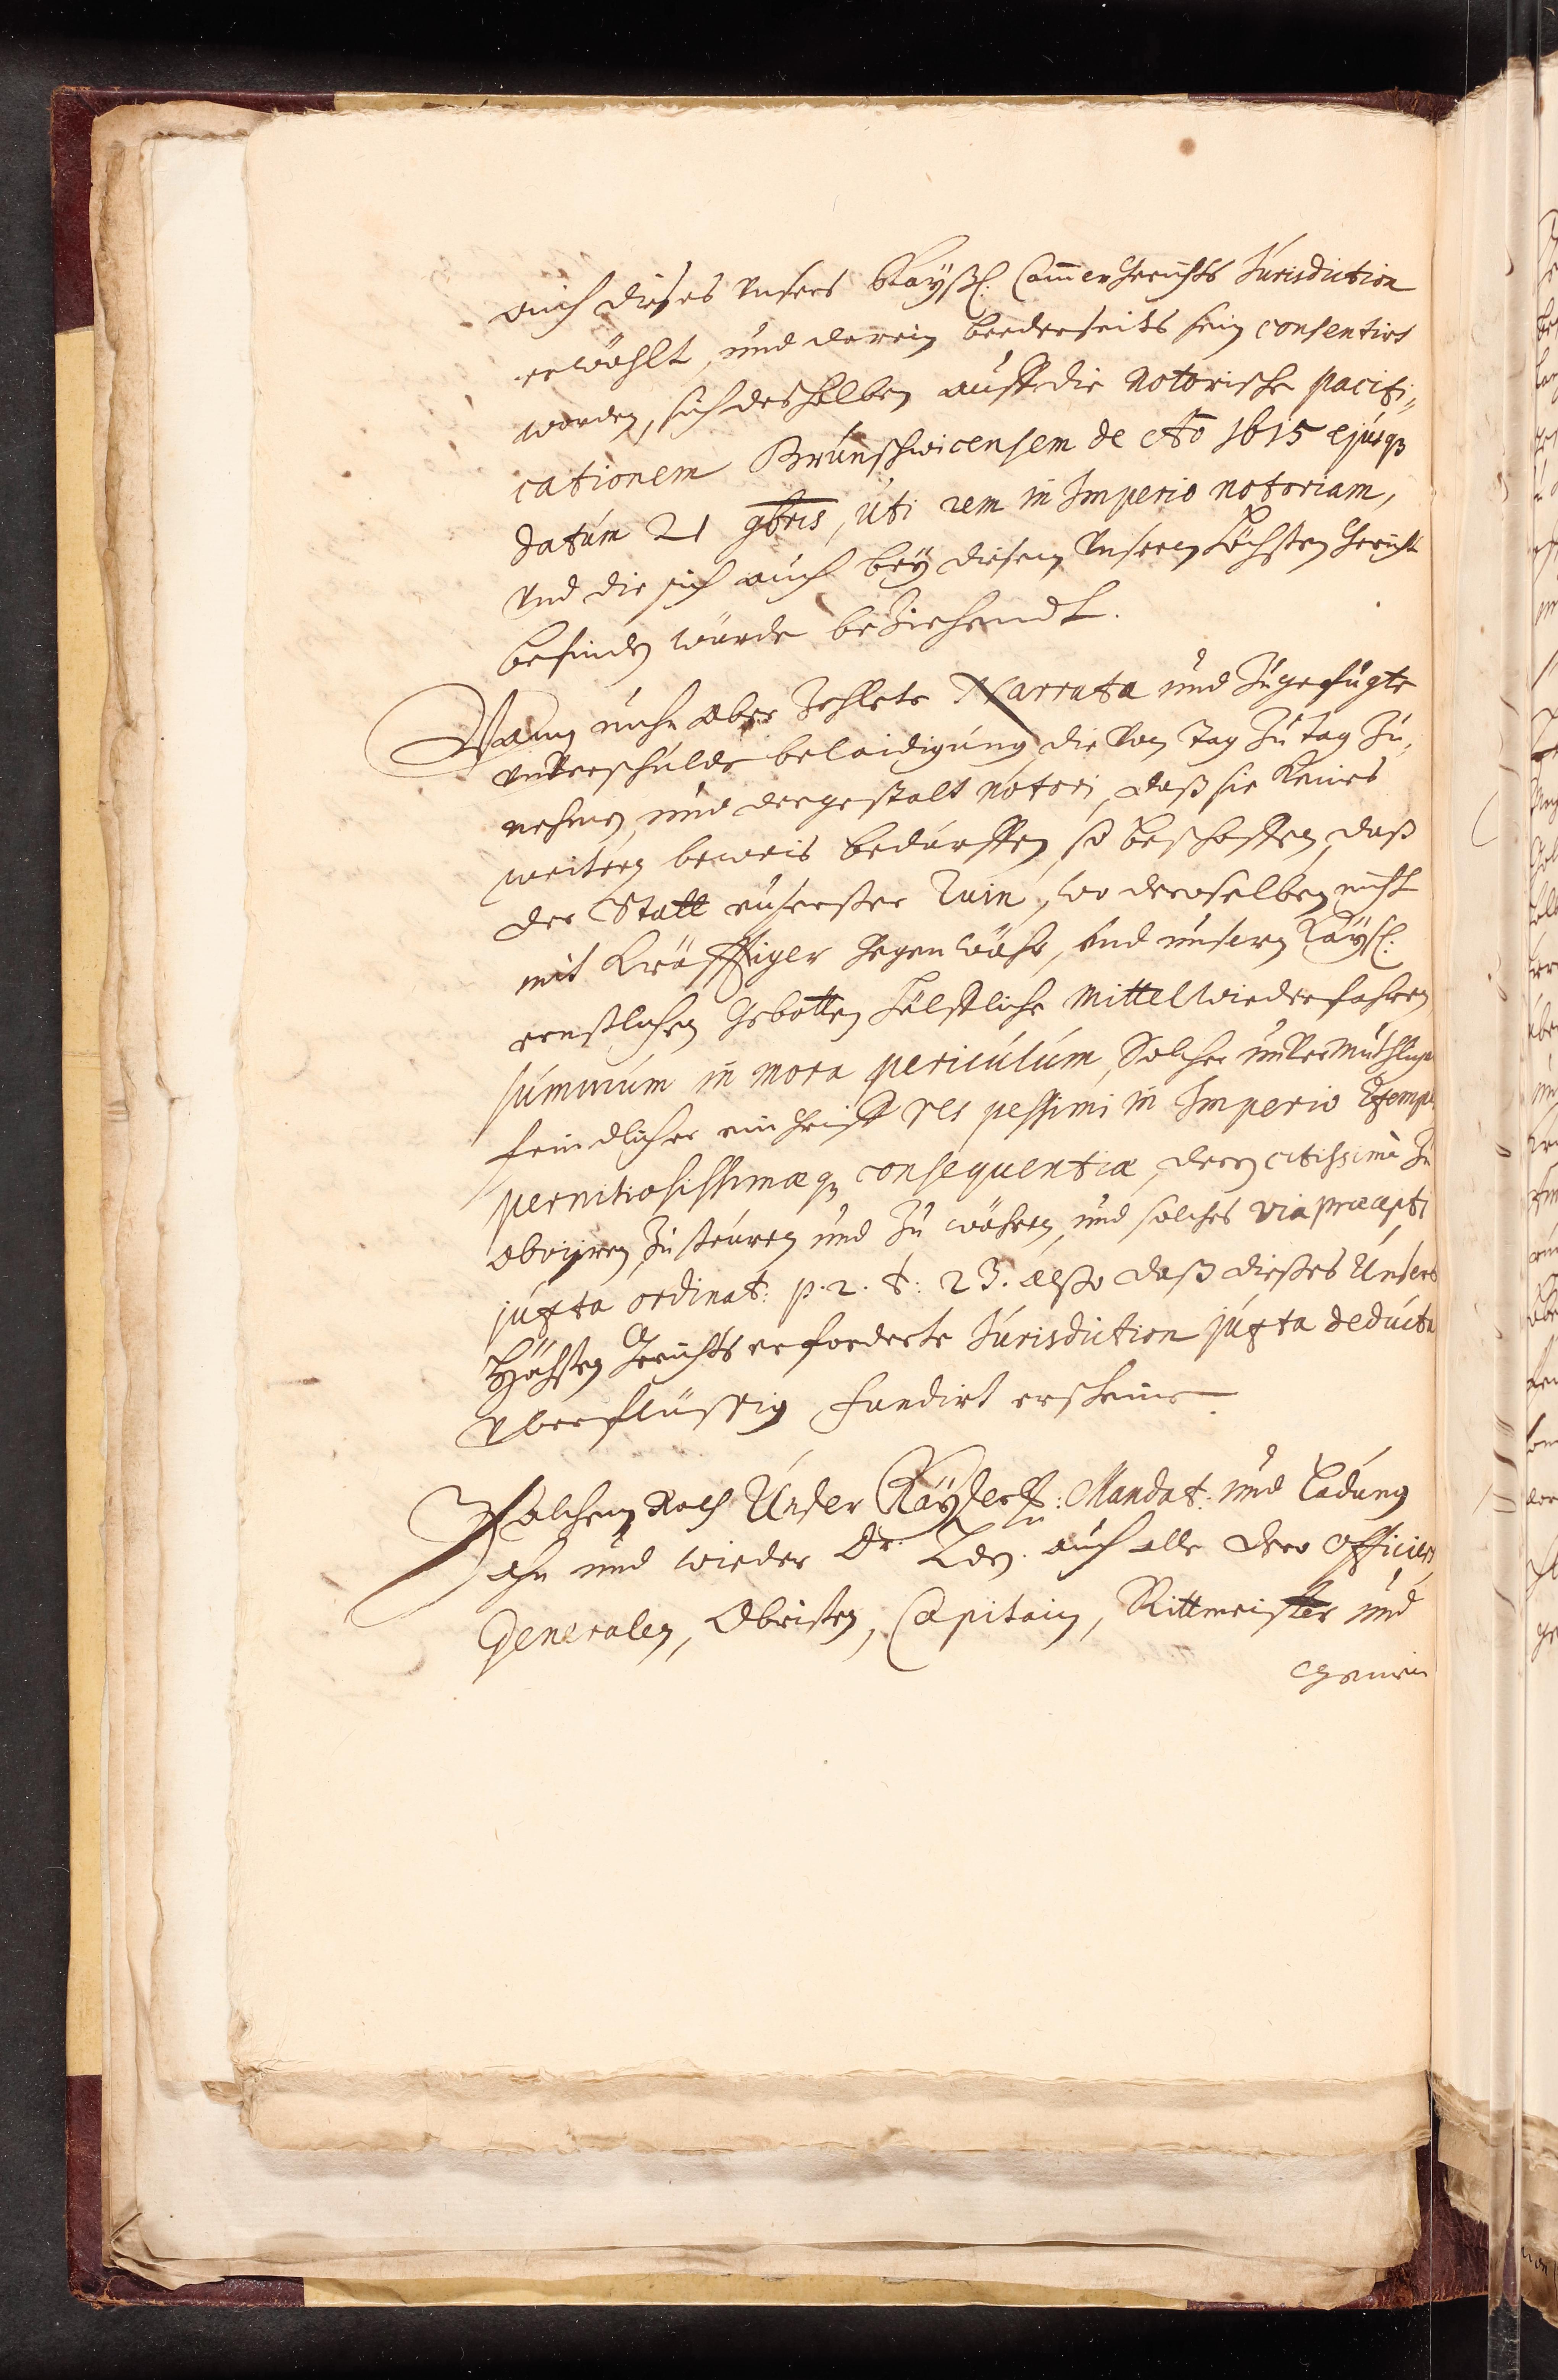 auch dieses Unsers Kayßl: Cammergerichts Jurisdiction
erwöhlt, und darein beederseits sein consentirt
worden, sich deshalben auff die notorische pacifi„
cationem Brunschwicensem de Ao 1615 ejusq3
datum 21 9bris, uti rem in Imperio notoriam,
Und die sich auch bey diesem Unserm Höchsten Gericht
befinden würde beziehendt.
Wann nuhn aber Narrata und zugefügte
unverschulde belaidigung, die von tag zu tag zu„
nehmen und dergestalt notori, daß sie keines
weitern beweis bedürffen, so beschaffen, daß
der Statt euserster Ruin, wo deroselben nicht
mit kräfftiger gegenwöhr, und unsern Kaysl:
ernstlichen Gebotten hülffliche Mittel wiederfahren
summum in mora periculum, Solcher unvermuthlicher
feindlicher eingriff res pessimi in Imperio Exempl
pernitiosissimaeq3 consequentiae, deren citissimè zu
obvijren, zu steuren und zu wöhren, und solches via praecepti
juxta ordinat: p. 2. t: 23. also daß dieses Unsers
Höchsten Gerichts erforderte Jurisdiction juxta deducta
Uberflüssig fundirt erscheine.
Solchem nach Unser Kayserl: Mandat: und Ladung
ahn und wieder Dr. Lden. auch alle dero Officirer,
Generalen, Obristen, Capitain, Rittmeister und
Gemein